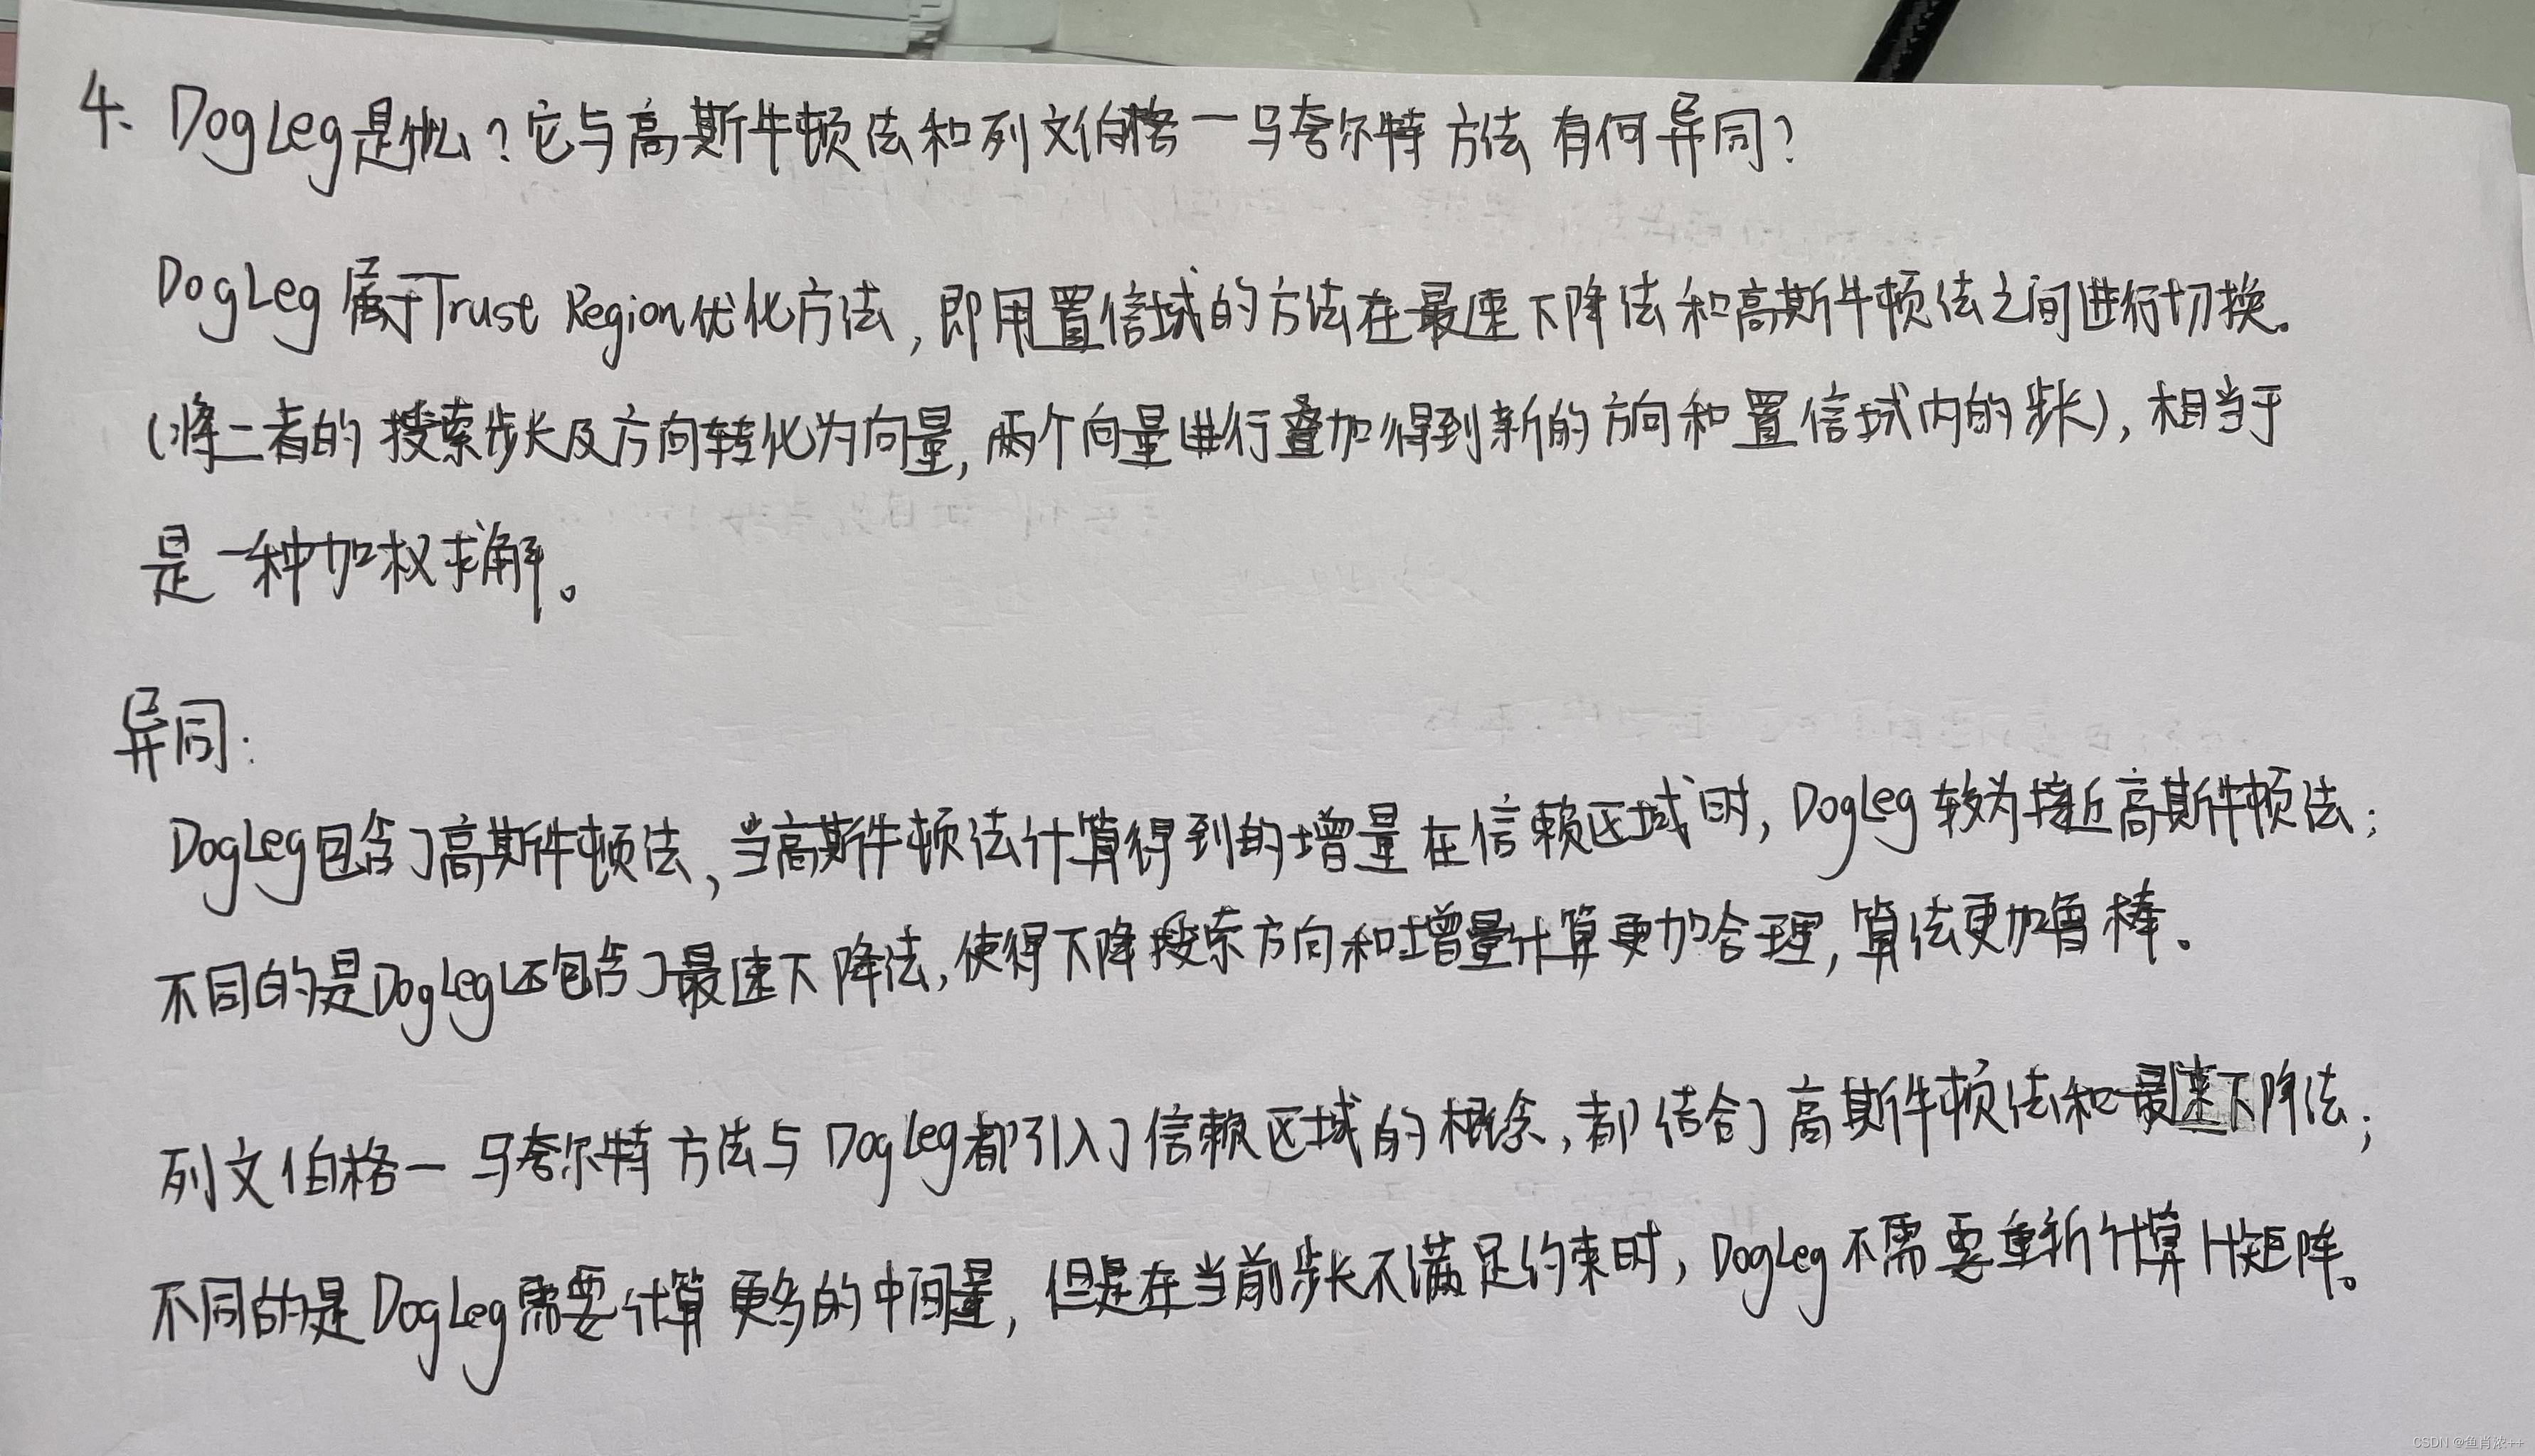 4、DogLeg是什么？它与高斯牛顿法和列文伯格一马夸尔特方法有何异同？
DogLeg属于Trust Region优化方法，即用置信域的方法在最速下降法和高斯牛顿法之间进行切换。
（将二者的搜索步长及方向转化为向量，两个向量进行叠加得到新的方向和置信域内的步长），相当于
是一种加权求解。
异同：
DogLeg包含了高斯牛顿法，当高斯牛顿法计算得到的增量在信赖区域时，DogLeg较为接近高斯牛顿法；
不同的是DogLeg还包含了最速下降法，使得下降搜索方向和增量计算更加合理，算法更加鲁棒。
列文伯格一马夸尔特方法与DogLeg都引入了信赖区域的概念，都结合了高斯牛顿法和最速下降法；
不同的是DogLeg需要计算更多的中间量，但是在当前步长不满足约束时，DogLeg不需要重新计算H矩阵。
CSDN @鱼肖浓++